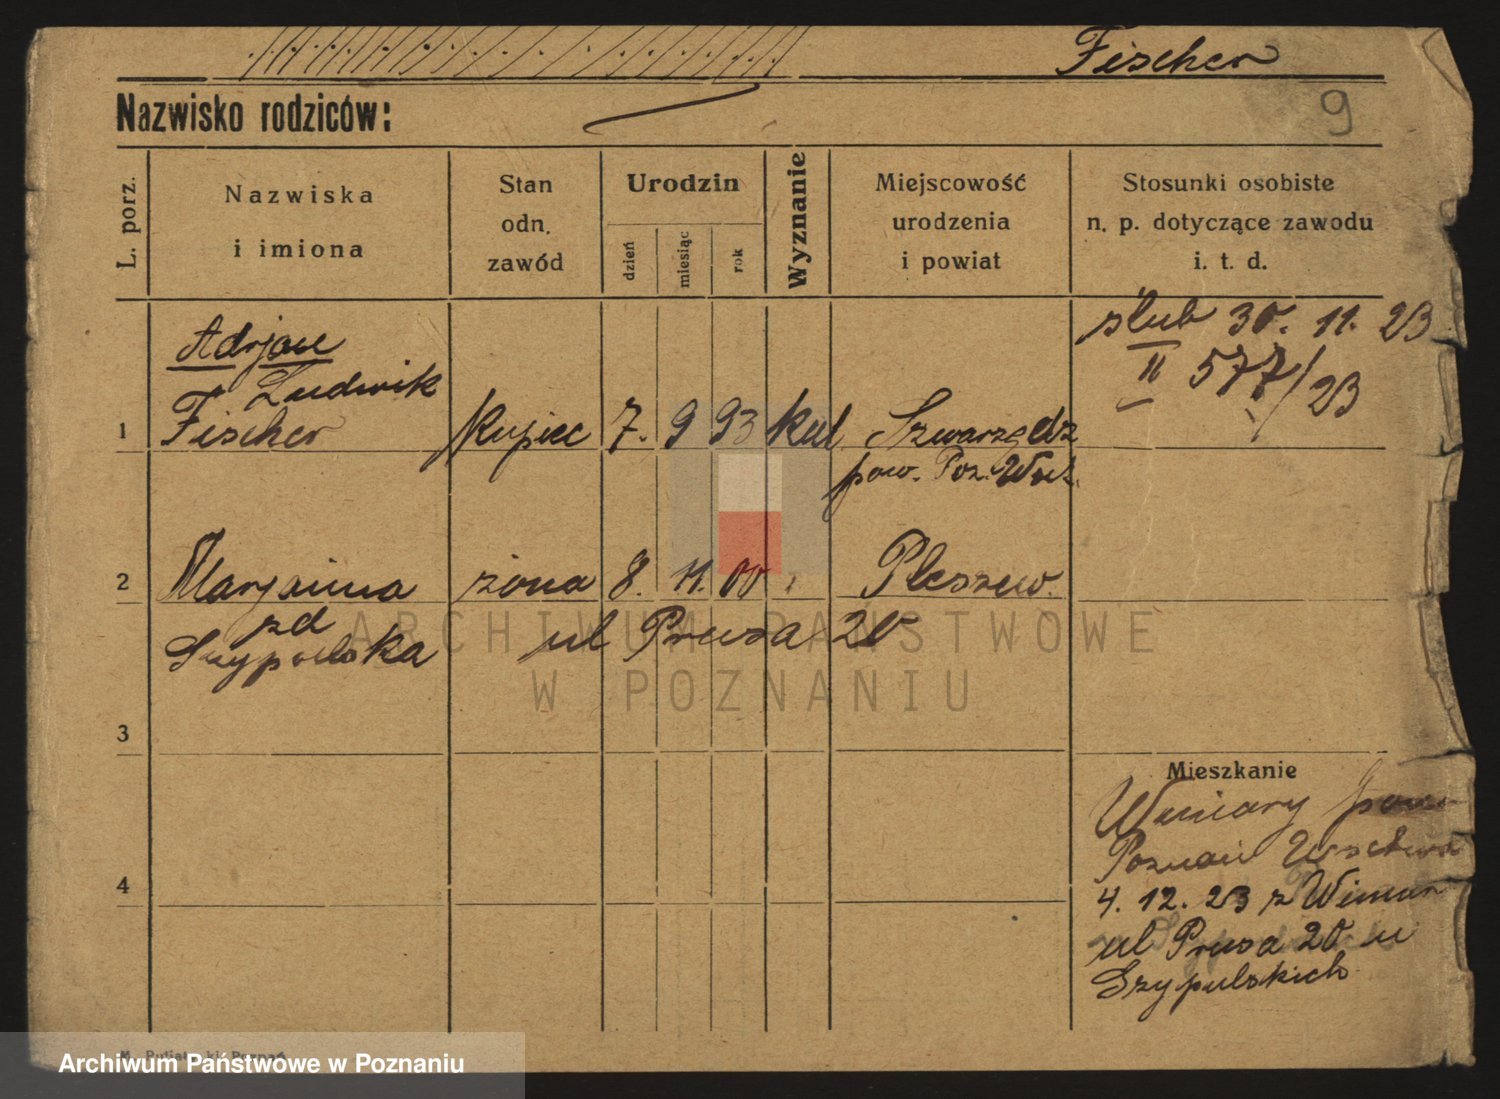 Fischer
Nazwisko rodziców:
9
L. porz.
Nazwiska
i imiona
Stan
odn.
zawód
Urodzin
dzień
miesiąc
rok
Wyznanie
Miejscowość
urodzenia
i powiat
Stosunki osobiste
n. p. dotyczące zawodu
i. t. d.
ślub 30. 11. 23
II 577/23
1
Adrjan
Ludwik
Fischer
kupiec 7. 9 93 kat Szwarzędz
pow. Poz. Wsch.
2
Marjanna żona 8. 11. 00 Pleszew.
zd
Szypulska
ul Prusa 20
ARCHIWUM PAŃSTWOWE
W POZNANIU
3
Mieszkanie
Winiary pow.
Poznań Wschod
4
4. 12. 23 z Winiar
ul Prusa 20 u
Szypulskich
Archiwum Państwowe w Poznaniu